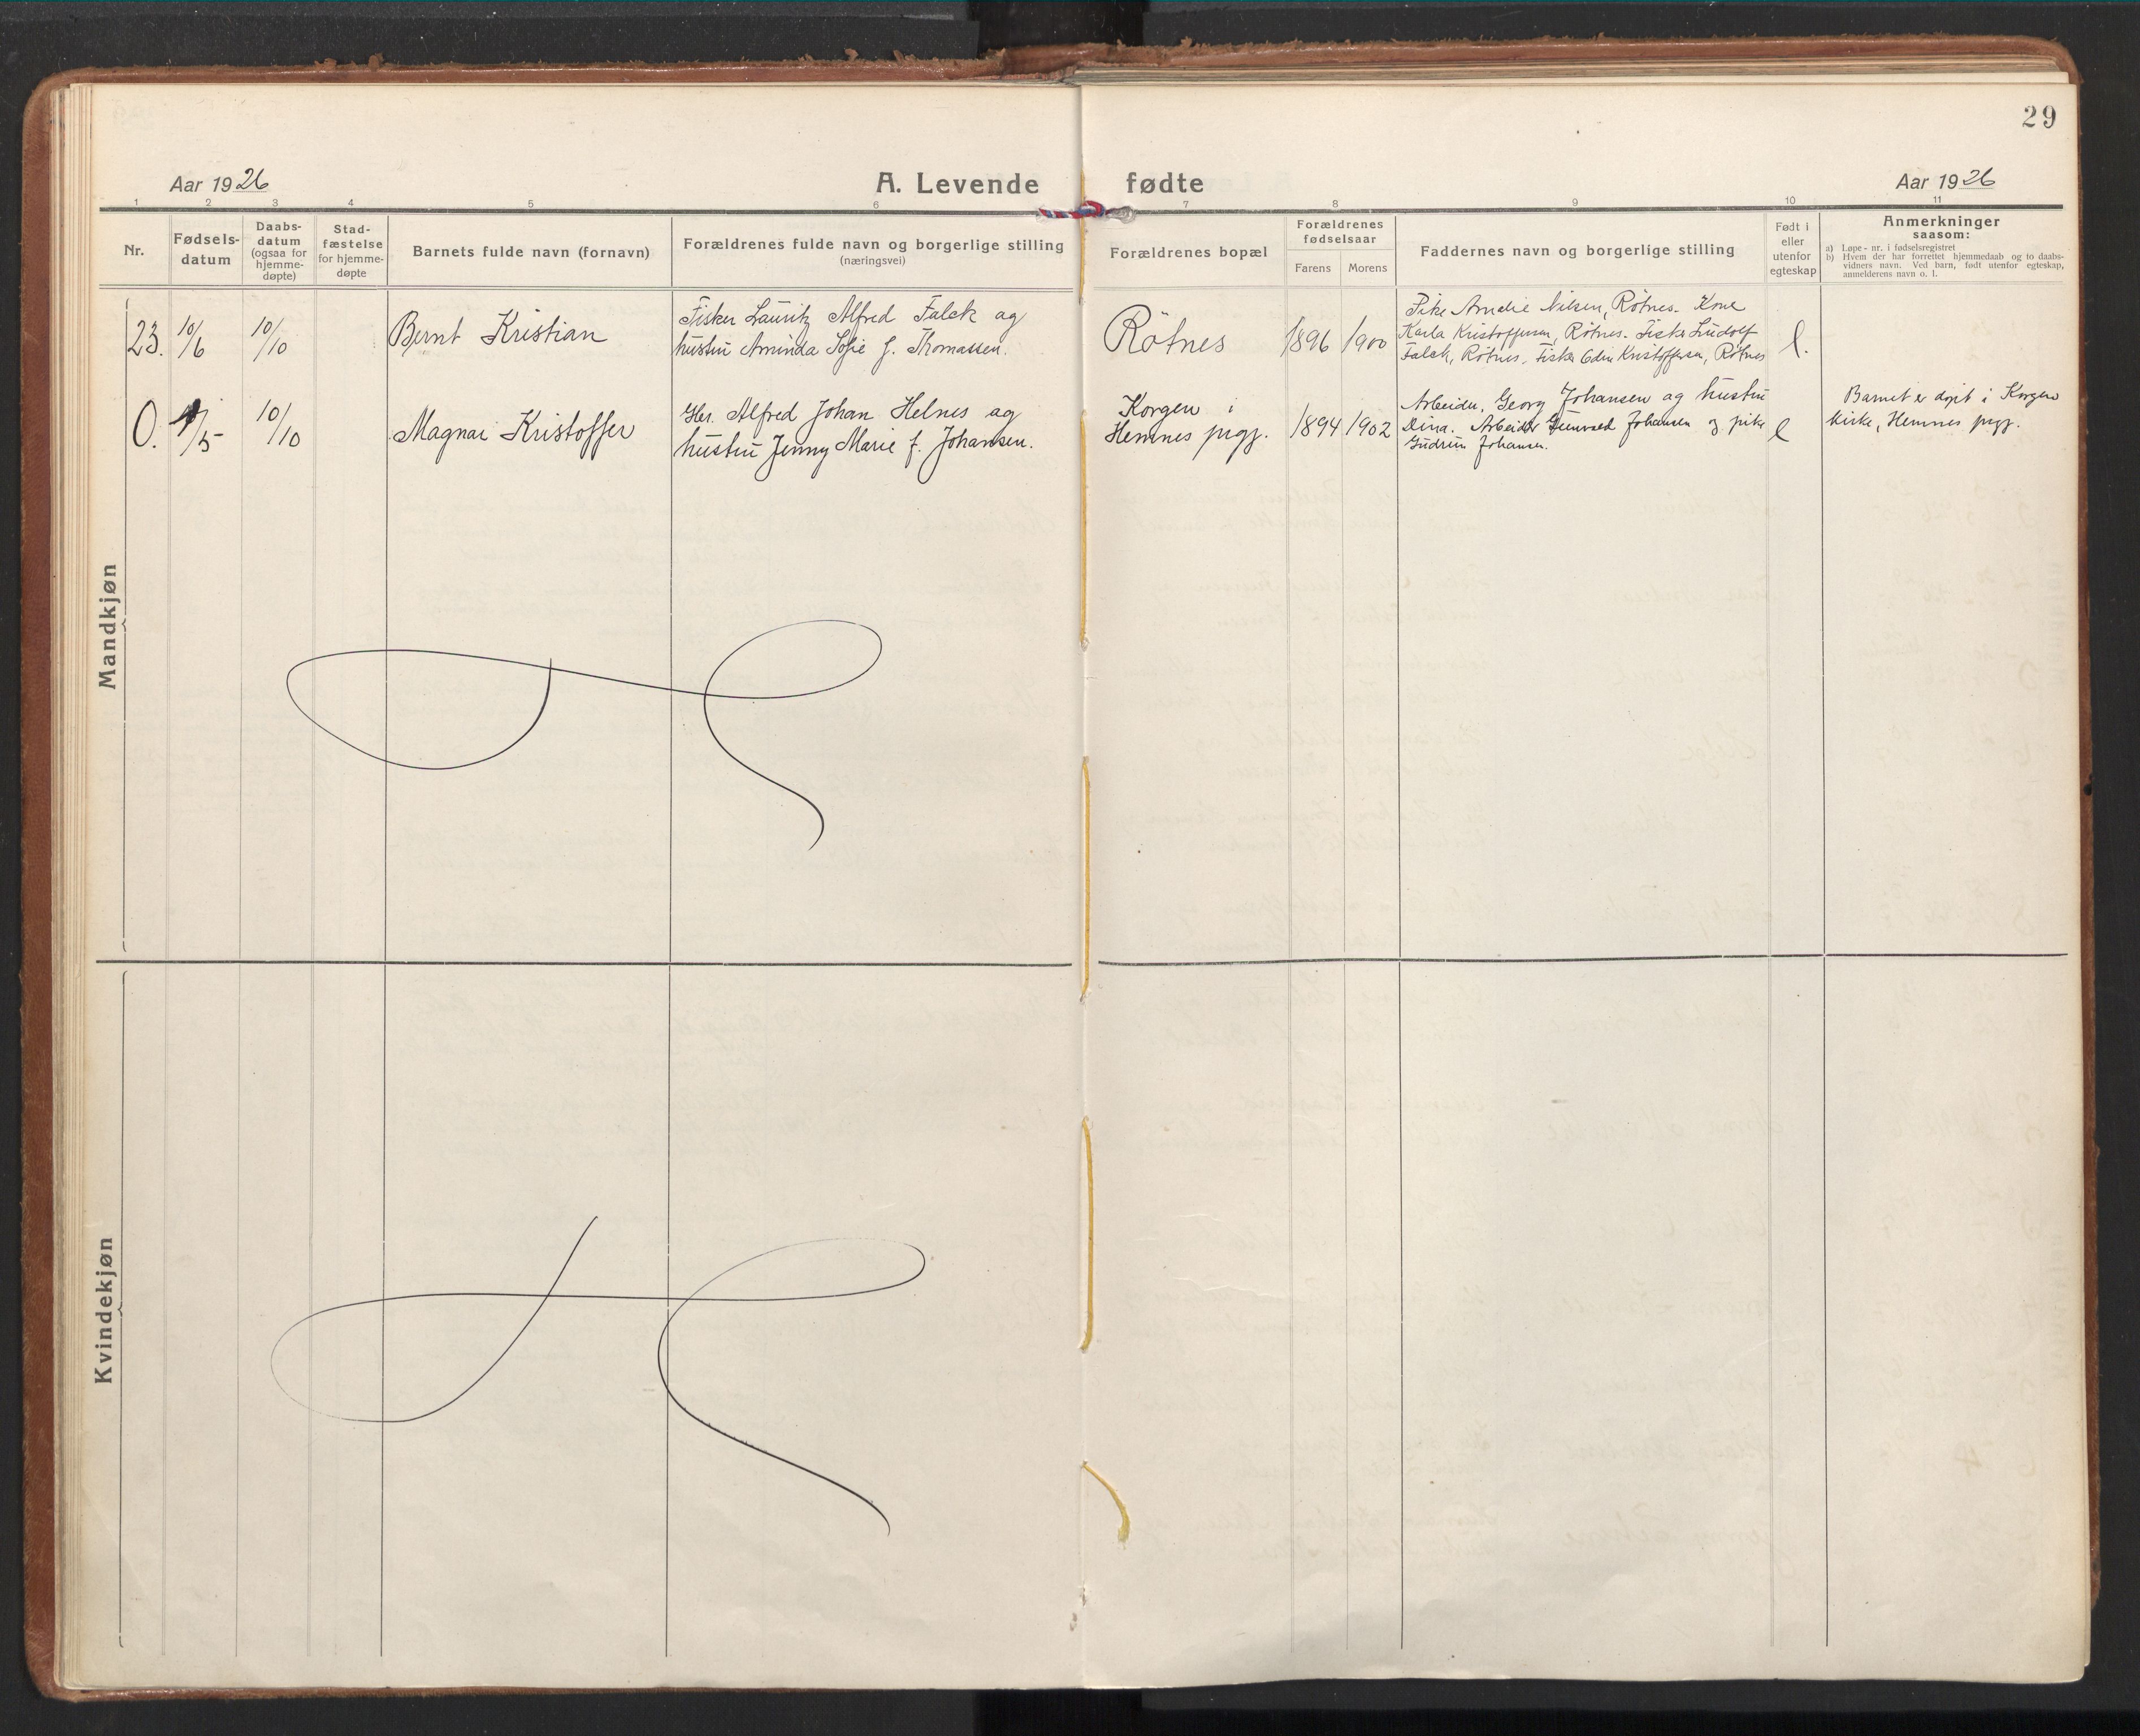 29
Aar 1926
A. Levende fødte
Aar 1926
1 2 3 4 5 6 7 8 9 10 11
Nr.
Fødsels-
datum
Daabs-
datum
(ogsaa for
hjemme-
døpte)
Stad-
fæstelse
for hjemme-
døpte
Barnets fulde navn (fornavn)
Forældrenes fulde navn og borgerlige stilling
(næringsvei)
Forældrenes bopæl
Forældrenes
fødselsaar
Farens Morens
Faddernes navn og borgerlige stilling
Født i
eller
utenfor
egteskap
Anmerkninger
saasom:
a) Løpe-nr. i fødselsregistret
b) Hvem der har forrettet hjemmedaab og to daabs-
vidners navn. Ved barn, født utenfor egteskap,
anmelderens navn o. l.
Mandkjøn
23. 10/6 10/10
Bernt Kristian
Fisker Lauritz Alfred Falck og
hustru Aminda Sofie f. Thomassen.
Rötnes
1896 1900
Pike Amelie Nilsen, Rötnes. Kone
Karla Kristoffersen, Rötnes. Fisker Ludolf
Falck, Rötnes. Fisker Odin Kristoffersen, Rötnes
e.
0. /5 10/10
Magnar Kristoffer
Hr. Alfred Johan Helnes og
hustru Jenny Marie f. Johansen.
Korgen i
Hemnes prgj.
1894 1902
Arbeider, Georg Johansen og hustru
Dina. Arbeider Johansen og pike
Gudrun Johansen.
e
Barnet er døpt i Korgen
kirke, Hemnes prgj.
Kvindekjøn